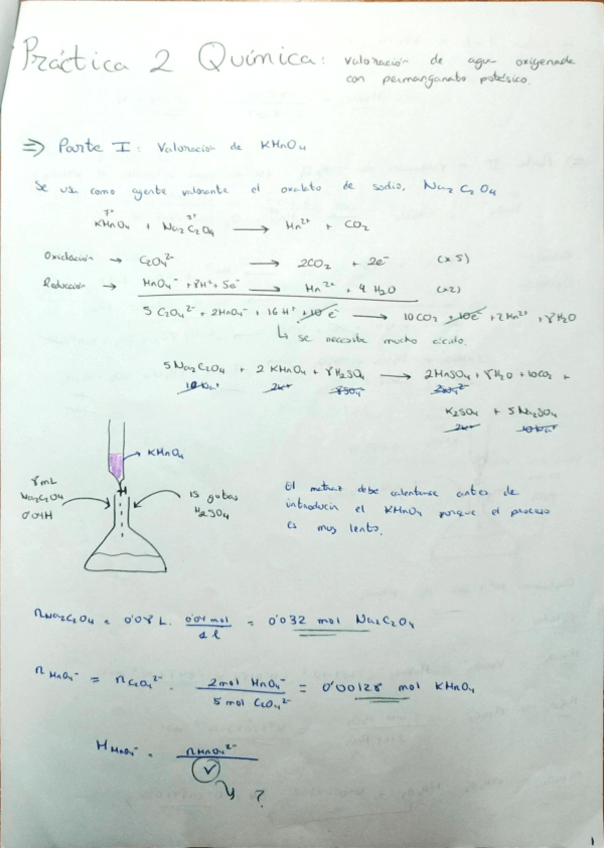 Práctica 2 Química: valoración de agua oxigenada
con permanganato potásico.
⇒ Parte I: Valoración de KMnO₄
Se usa como agente valorante el oxalato de sodio, Na₂C₂O₄
7+ 3+
KMnO₄ + Na₂C₂O₄ → Mn²⁺ + CO₂
Oxidación → C₂O₄²⁻ → 2CO₂ + 2e⁻ (x5)
Reducción → MnO₄⁻ + 8H⁺ + 5e⁻ → Mn²⁺ + 4H₂O (x2)
5 C₂O₄²⁻ + 2MnO₄⁻ + 16H⁺ + 10e⁻ → 10CO₂ + 10e⁻ + 2Mn²⁺ + 8H₂O
↳ se necesita mucho
5Na₂C₂O₄ + 2KMnO₄ + 8H₂SO₄ → 2MnSO₄ + 8H₂O + 10CO₂ +
10Na⁺ 2K⁺ 8SO₄
K₂SO₄ + 5Na₂SO₄
2K⁺ 10Na⁺
→ KMnO₄
8mL
Na₂C₂O₄
0'04M
15 gotas
H₂SO₄
El matraz debe calentarse antes de
introducir el KMnO₄ porque el proceso
es muy lento.
nNa₂C₂O₄ = 0'08 L · 0'04 mol / 1 l = 0'032 mol Na₂C₂O₄
nMnO₄⁻ = nC₂O₄²⁻ · 2 mol MnO₄⁻ / 5 mol C₂O₄²⁻ = 0'00128 mol KMnO₄
MMnO₄⁻ = nMnO₄²⁻ / V
?
1